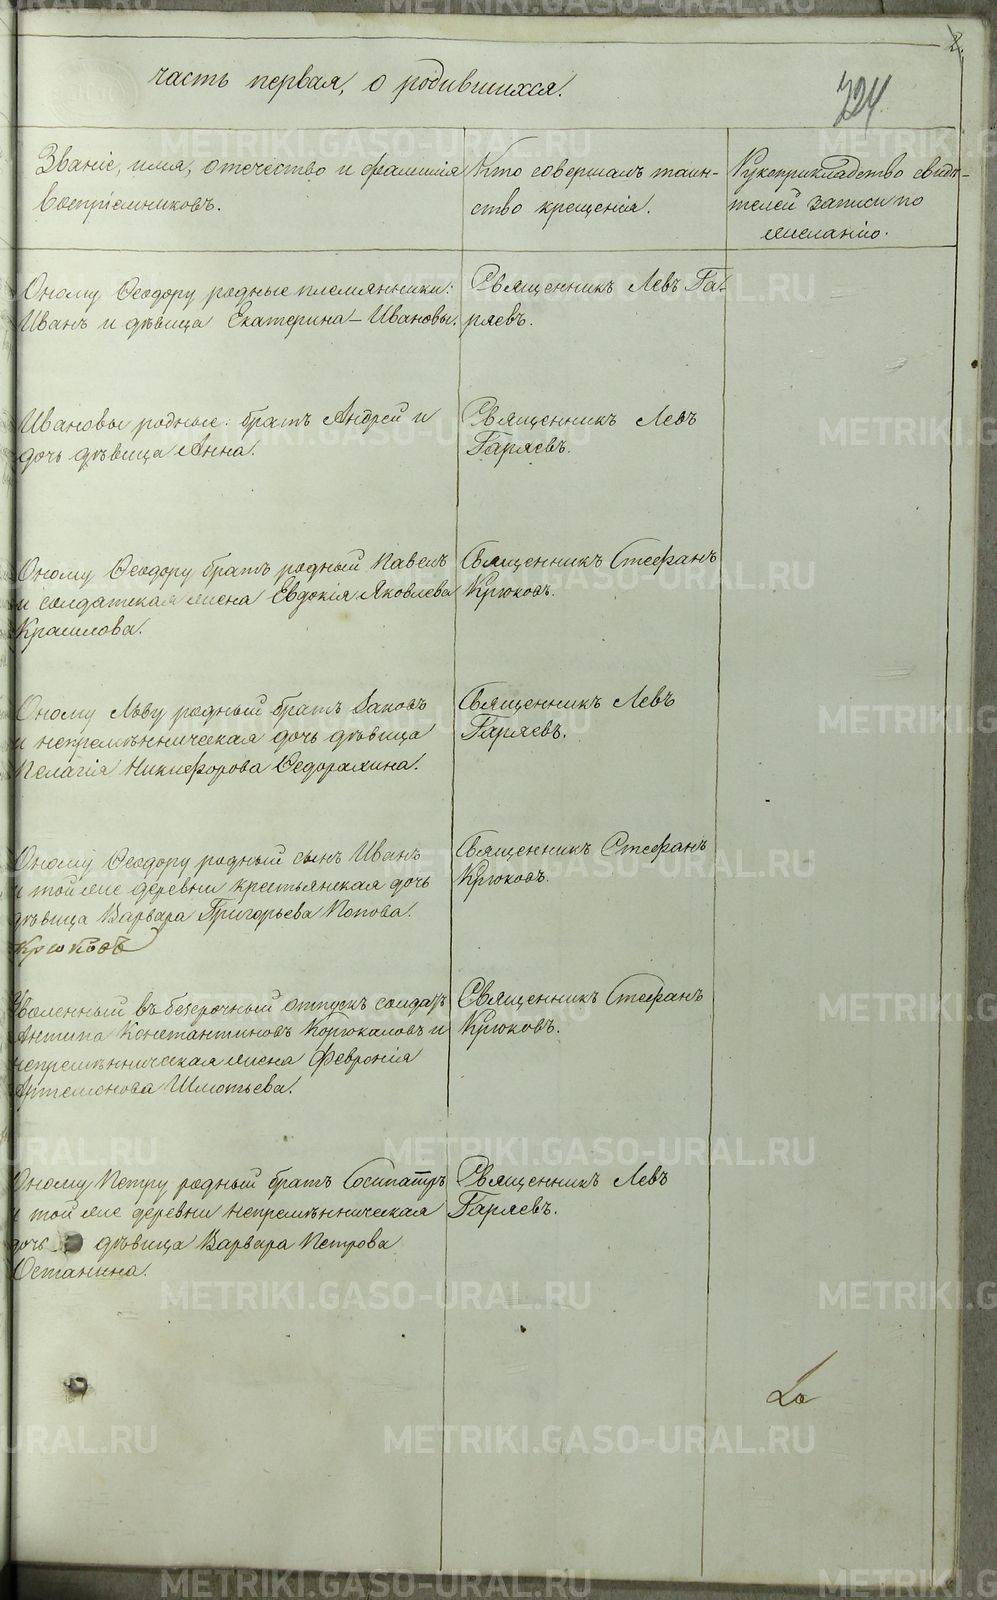 часть первая, о родившихся.
2.
724
Званіе, имя, отечество и фамилія
воспріемниковъ.
Кто совершалъ таин-
ство крещенія.
Рукоприкладство свидѣ-
телей записи по
желанію.
Оному Ѳеодору родные племянники:
Иванъ и дѣвица Екатерина Ивановы.
Священникъ Левъ Га-
ряевъ.
Ивановы родные: братъ Андрей и
дочь дѣвица Анна.
Священникъ Левъ
Гаряевъ.
Оному Ѳеодору братъ родный Павелъ
и солдатская жена Евдокія Яковлева
Крашлова.
Священникъ Стефанъ
Крюковъ.
Оному Льву родный братъ Іаковъ
и непремѣнническая дочь дѣвица
Пелагія Никифорова Ѳедорахина.
Священникъ Левъ
Гаряевъ.
Оному Ѳеодору родный сынъ Иванъ
и той же деревни крестьянская дочь
дѣвица Варвара Григорьева Попова.
Крюковъ
Священникъ Стефанъ
Крюковъ.
Уволенный въ безсрочный отпускъ солдатъ
Антипа Константиновъ Корюкаловъ и
непремѣнническая жена Февронія
Артемонова Шмотьева.
Священникъ Стефанъ
Крюковъ.
Оному Петру родный братъ Сосипатръ
и той же деревни непремѣнническая
дочь дѣвица Варвара Петрова
Останина.
Священникъ Левъ
Гаряевъ.
METRIKI.GASO-URAL.RU